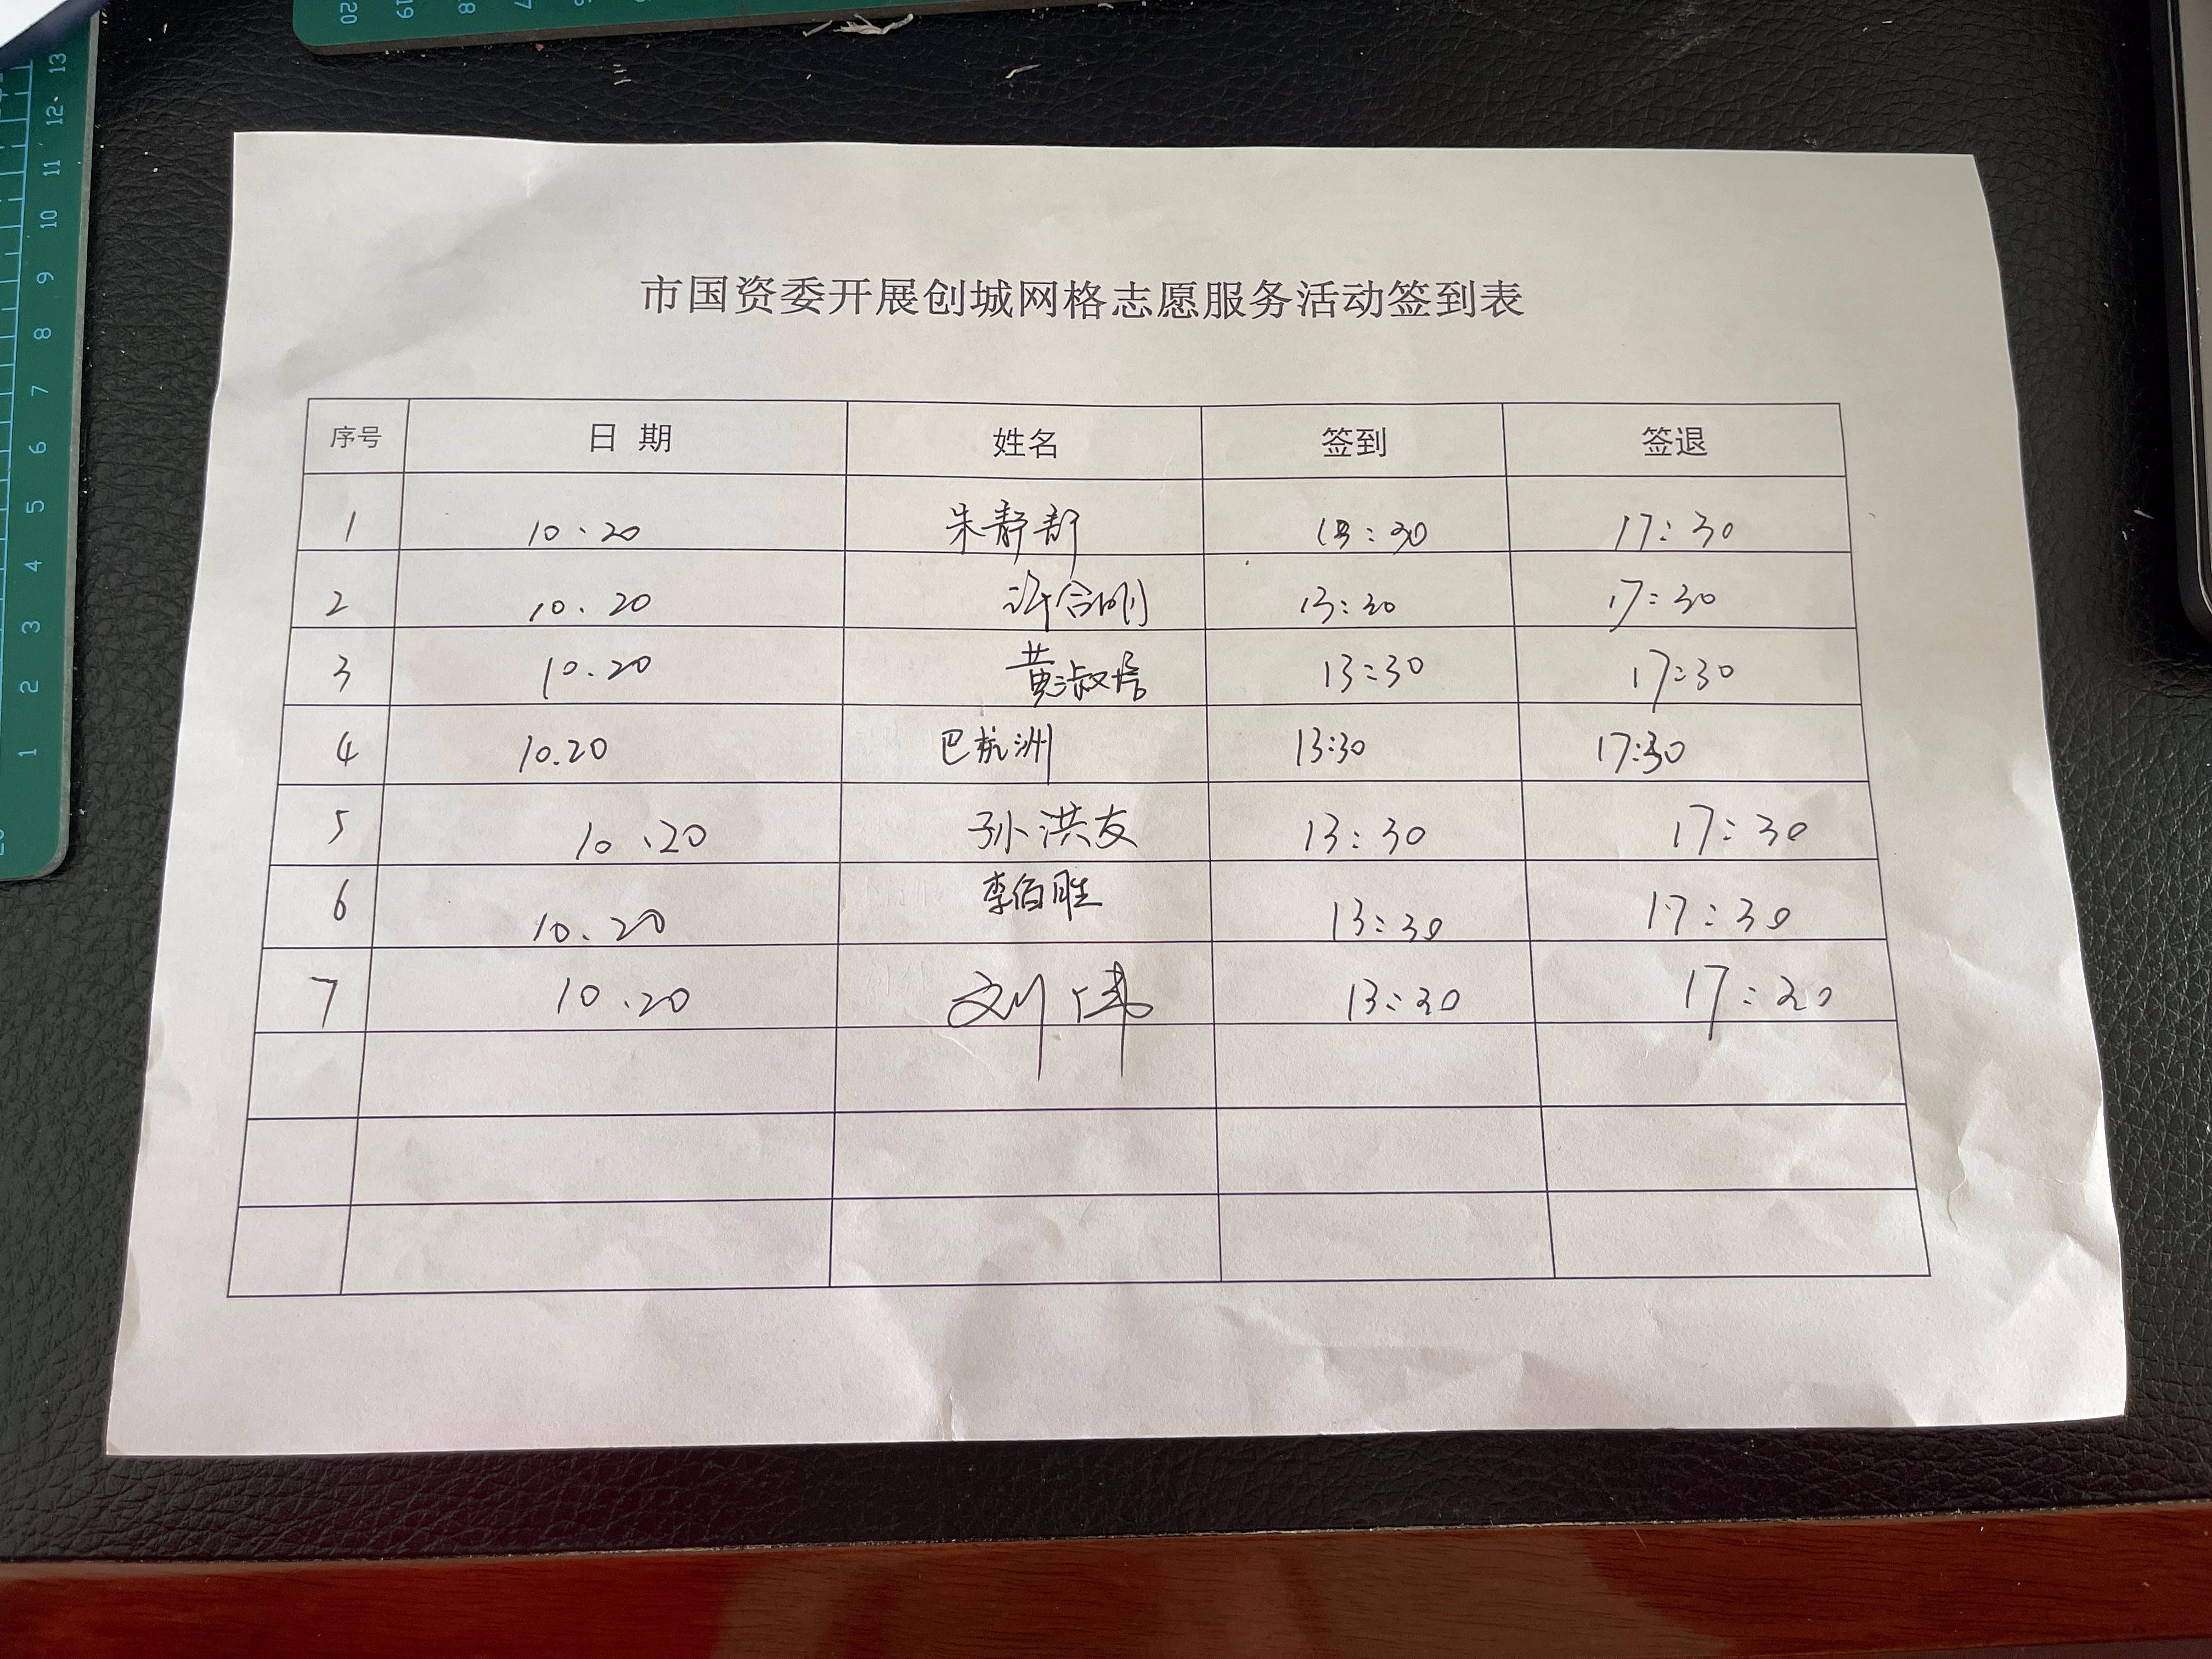 市国资委开展创城网格志愿服务活动签到表
序号 日 期 姓名 签到 签退
1 10.20 朱静 13:30 17:30
2 10.20 许合刚 13:30 17:30
3 10.20 黄淑 13:30 17:30
4 10.20 巴杭洲 13:30 17:30
5 10.20 孙洪友 13:30 17:30
6 10.20 李佰胜 13:30 17:30
7 10.20 刘伟 13:30 17:30
20 19 18
13
12
11
10
9
8
7
6
5
4
3
2
1